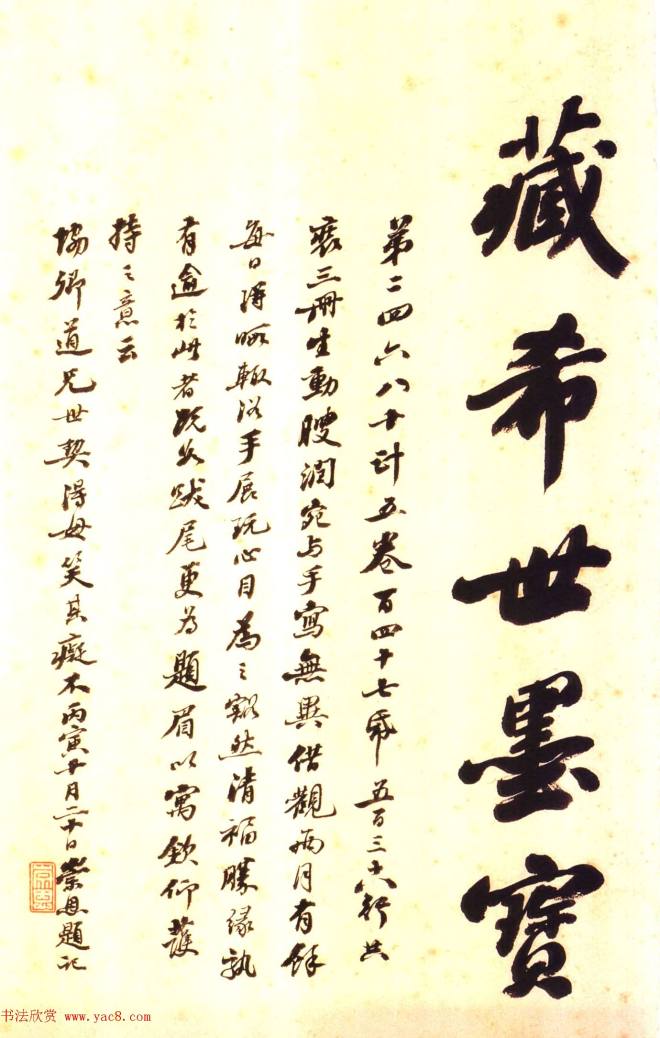 藏希世墨寶
第二四六八十計五卷百四十七帋五百三十八行共
裘三冊生動腴潤宛与手寫無異借觀兩月有餘
每日得暇輙浴手展玩心目為之豁然清福勝緣孰
有逾於此者既为跋尾更為題眉以寓欽仰護
持之意云
協卿道兄世契得毋笑其癡不丙寅十月二十日崇恩題記
崇恩
书法欣赏 www.yac8.com